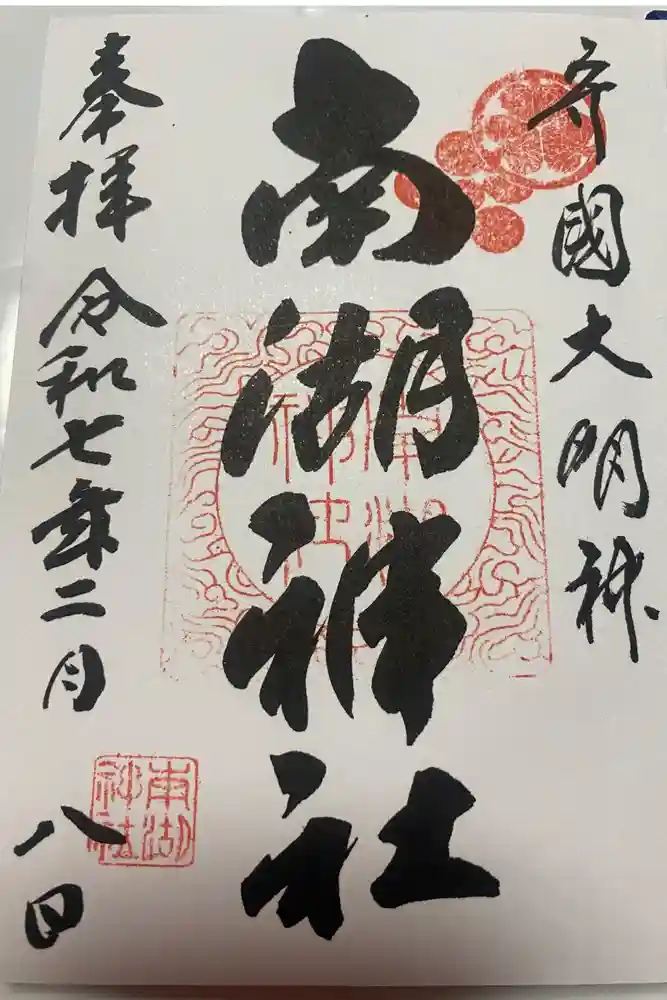 守國大明神
南湖神社
奉拝 令和七年二月八日
南湖神社
南湖神社